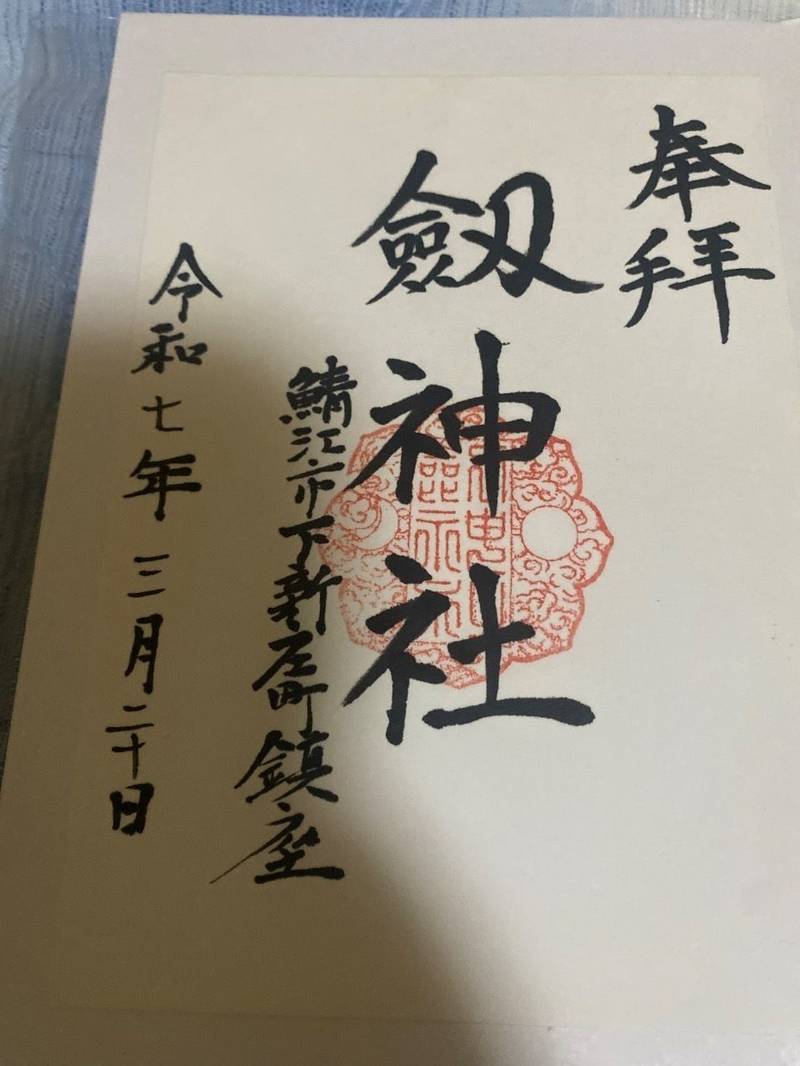 奉拜
劔神社
鯖江市下新庄町鎮座
令和七年三月二十日